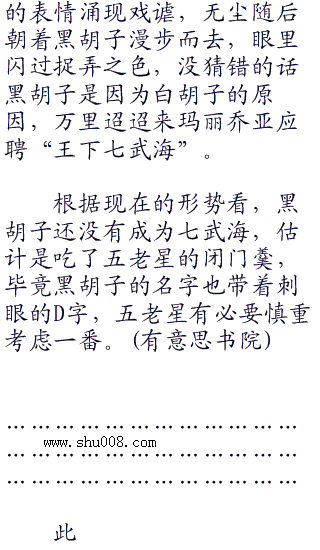 的表情涌现戏谑，无尘随后
朝着黑胡子漫步而去，眼里
闪过捉弄之色，没猜错的话
黑胡子是因为白胡子的原
因，万里迢迢来玛丽乔亚应
聘“王下七武海”。
根据现在的形势看，黑
胡子还没有成为七武海，估
计是吃了五老星的闭门羹，
毕竟黑胡子的名字也带着刺
眼的D字，五老星有必要慎重
考虑一番。(有意思书院)
… … … … … … … … … … … … … … … …
www.shu008.com
… … … … … … … … … … … … … … … …
… … … … … … … … … … … … … … … …
此